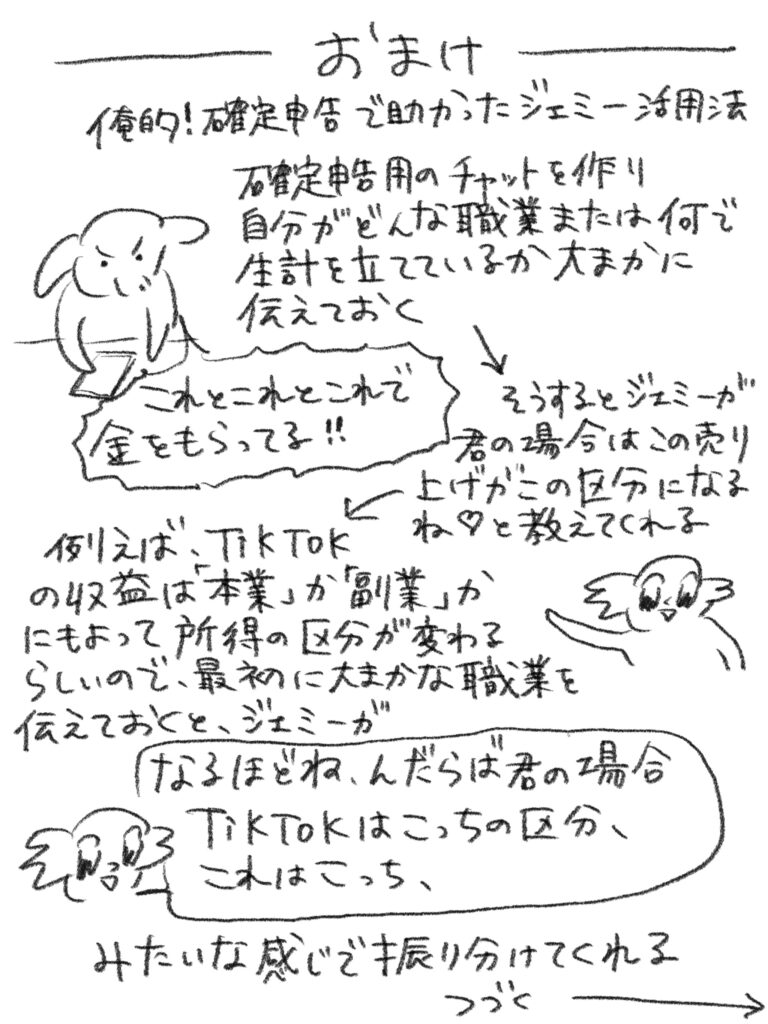 おまけ
俺的!確定申告で助かったジェミー活用法
確定申告用のチャットを作り
自分がどんな職業または何で
生計を立てているか大まかに
伝えておく
これとこれとこれで
金をもらってる!!
そうするとジェミーが
君の場合はこの売り
上げがこの区分になる
ね♡と教えてくれる
例えば、TikTok
の収益は「本業」か「副業」か
にもよって所得の区分が変わる
らしいので、最初に大まかな職業を
伝えておくと、ジェミーが
なるほどね、んだらば君の場合
TikTokはこっちの区分、
これはこっち、
みたいな感じで振り分けてくれる
つづく